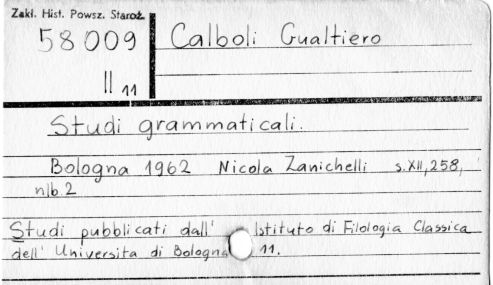 Zakł. Hist. Powsz. Staroż.
58009
II 11
Calboli Gualtiero
Studi grammaticali.
Bologna 1962 Nicola Zanichelli s. XII, 258,
nlb. 2
Studi pubblicati dall' Istituto di Filologia Classica
dell' Universita di Bologna 11.